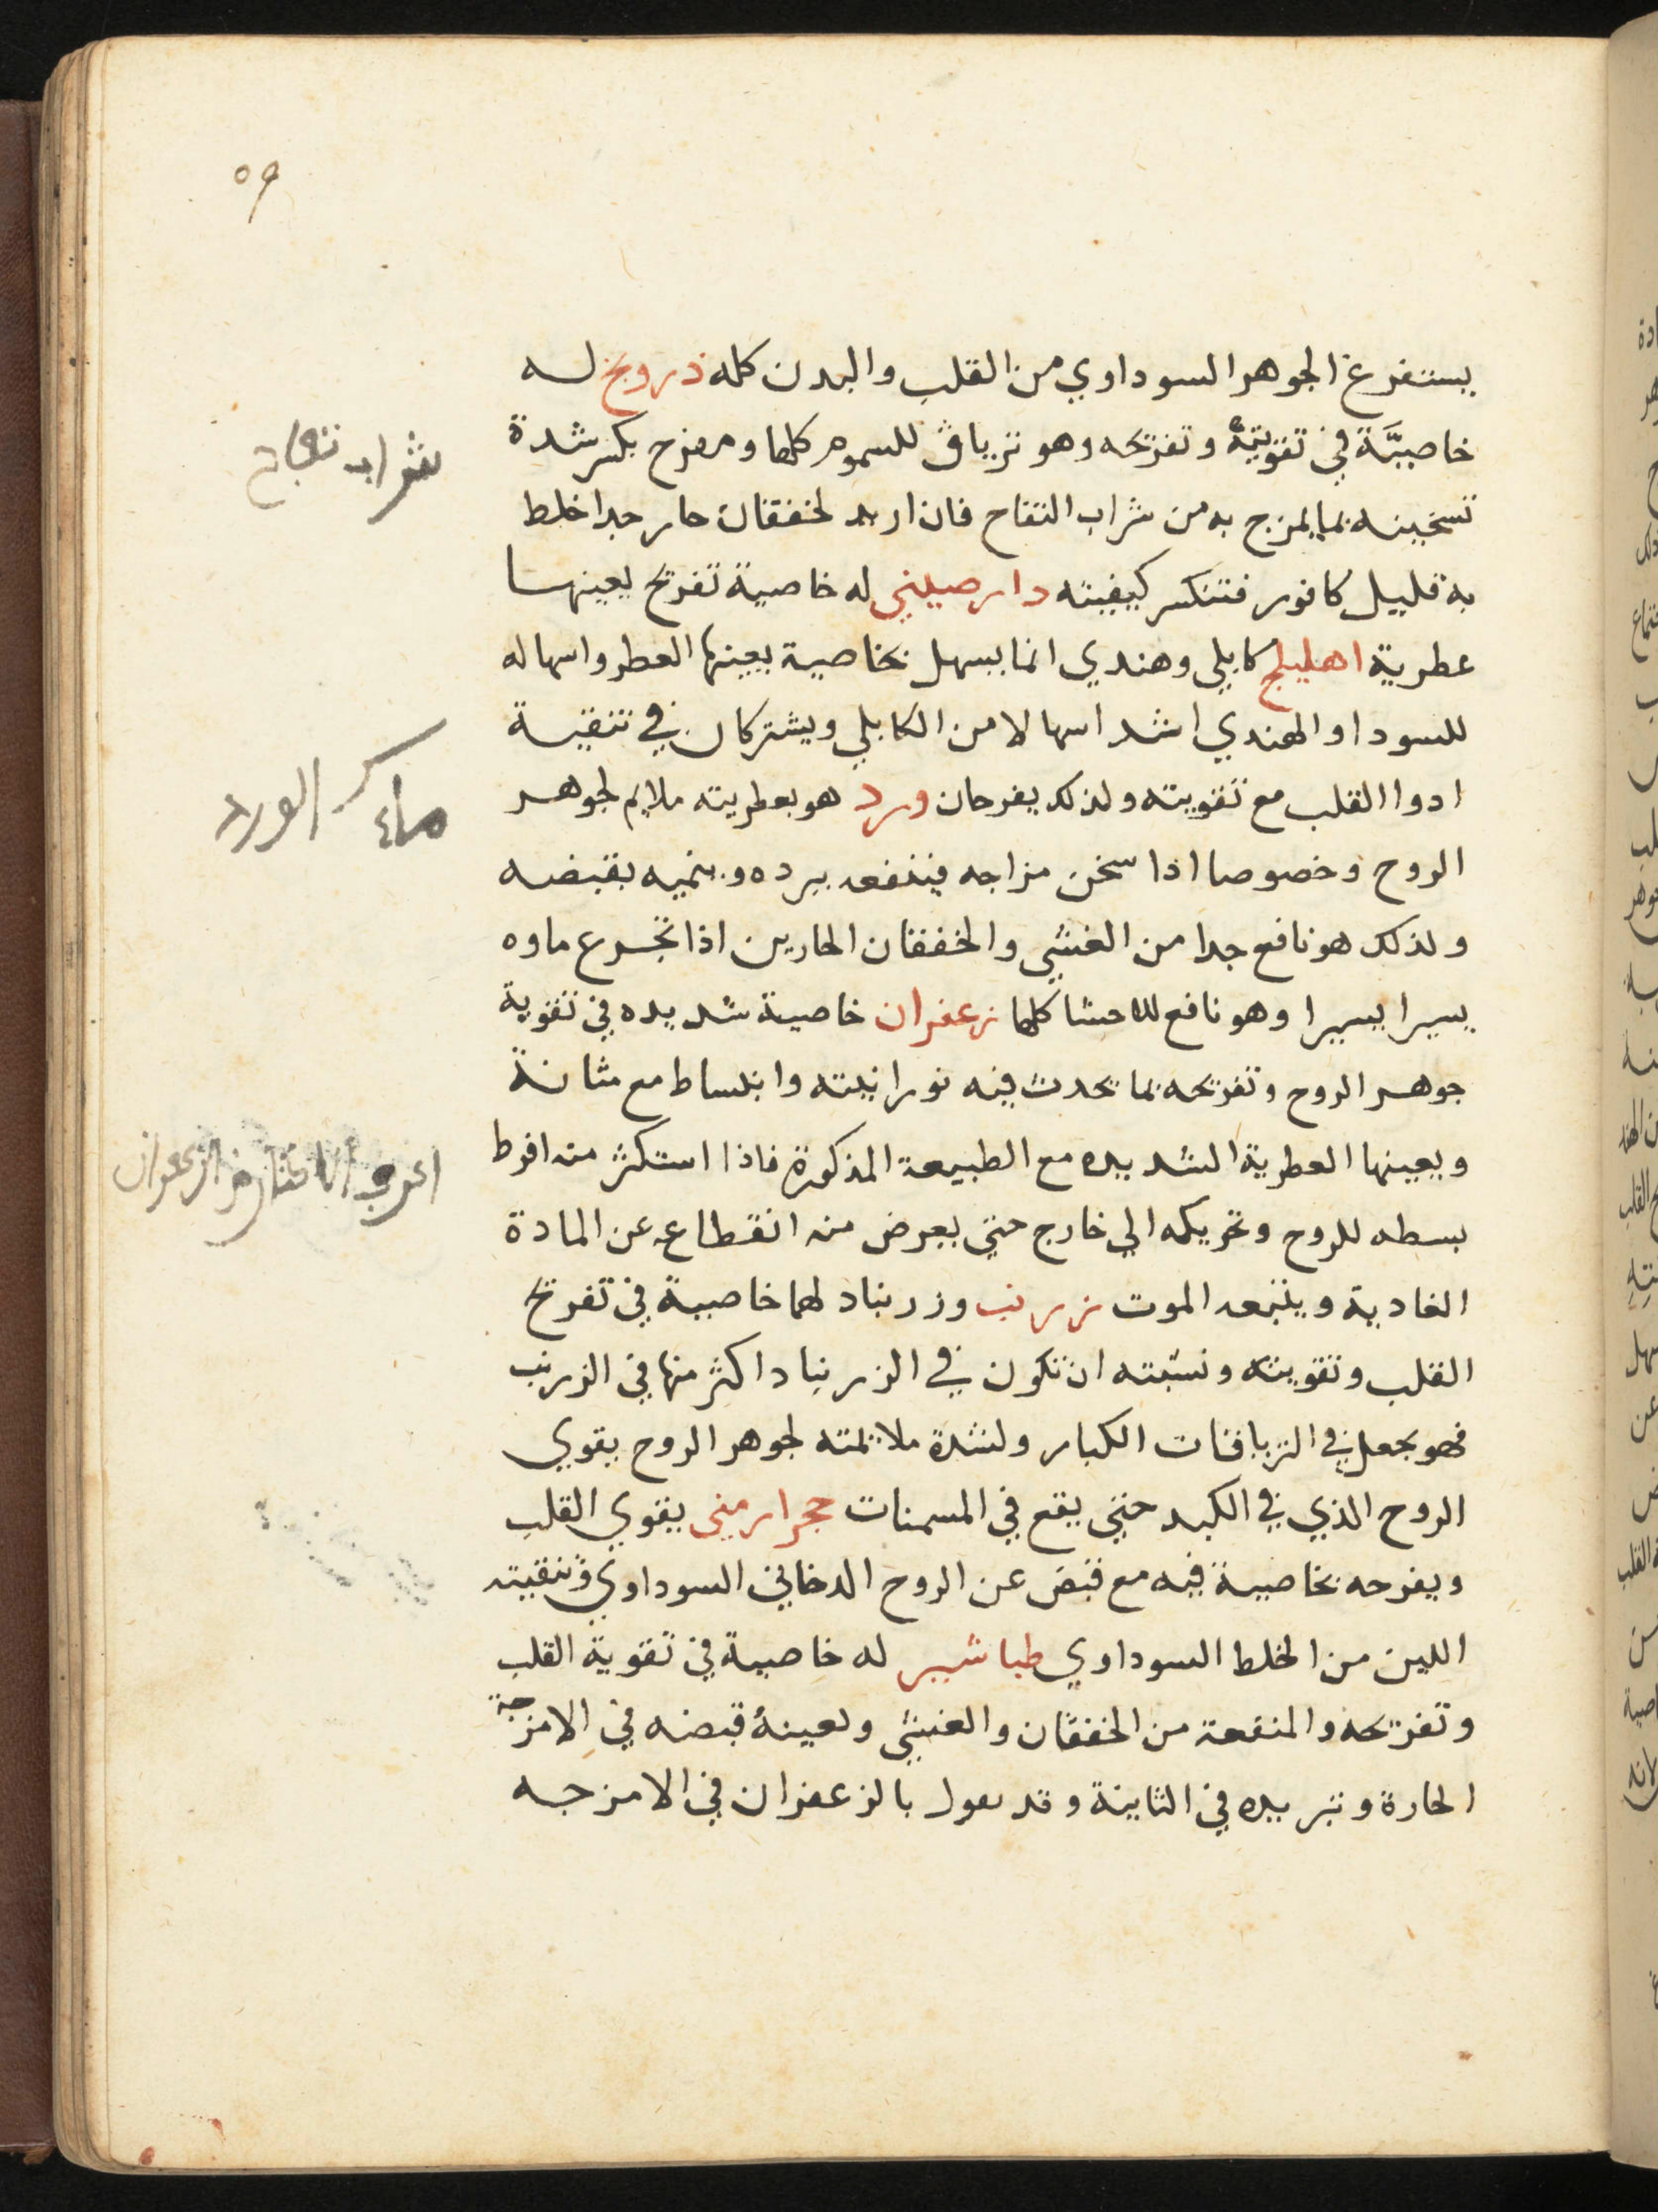 ٥٩
يستفرغ الجوهر السوداوي من القلب والبدن كله دروبخ له
خاصيَّة في تقويته وتفريحه وهو ترياق للسموم كلها ومفرح بكسر شدة
تسخينه بما يمزج به من شراب التفاح فان اريد لخفقان حار جدا خلط
به قليل كافور فتنكسر كيفيته دارصيني له خاصية تفريح يعينها
عطرية اهليلج كابلي وهندي انما يسهل بخاصية يعينها العطر واسهاله
للسودا والهندي اشد اسهالا من الكابلي ويشتركان في تنقية
ادوا القلب مع تقويته ولذلك يفرحان ورد هو بعطريته ملايم لجوهر
الروح وخصوصا اذا سخن مزاجه فينفعه ببرده وينميه بقبضه
ولذلك هو نافع جدا من الغشي والخفقان الحارين اذا تجرع ماوه
يسيرا يسيرا وهو نافع للاحشا كلها زعفران خاصية شديده في تقوية
جوهر الروح وتفريحه بما يحدث فيه نورانيته وانبساط مع متانة
ويعينها العطرية الشديده مع الطبيعة المذكورة فاذا استكثر منه افرط
بسطه للروح وتحريكه الي خارج حتي يعرض منه انقطاعه عن المادة
الغادية ويتبعه الموت زرنب وزرنباد لهما خاصية في تفريح
القلب وتقويته ونسبته ان تكون في الزرنباد اكثر منها في الزرنب
فهو يجعل في الترياقات الكبار ولشدة ملايمته لجوهر الروح يقوي
الروح الذي في الكبد حتي يقع في المسمنات حجر ارميني يقوي القلب
ويفرحه بخاصية فيه مع قبض عن الروح الدخاني السوداوي وتنقيته
اللين من الخلط السوداوي طباشير له خاصية في تقوية القلب
وتفريحه والمنفعة من الخفقان والغشي ويعينه قبضه في الامزجة
الحارة وتبريده في الثانية وقد يعول بالزعفران في الامزجه
شراب تفاح
ماء الورد